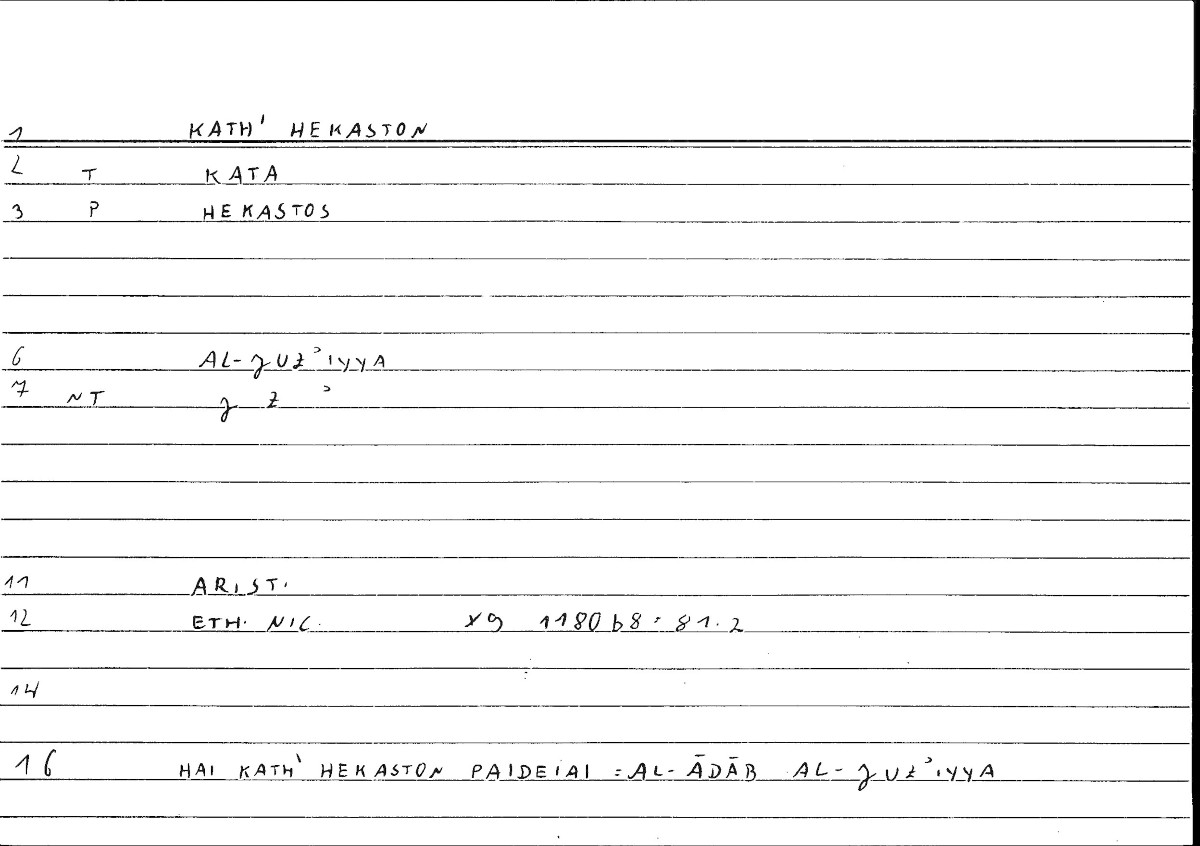 1 KATH' HEKASTON
2 T KATA
3 P HEKASTOS
6 AL-ǧUZʾIYYA
7 NT ǧ Z ʾ
11 ARIST.
12 ETH. NIC. X9 1180b8 : 81.2
14
16 HAI KATH' HEKASTON PAIDEIAI = AL-ĀDĀB AL-ǧUZʾIYYA